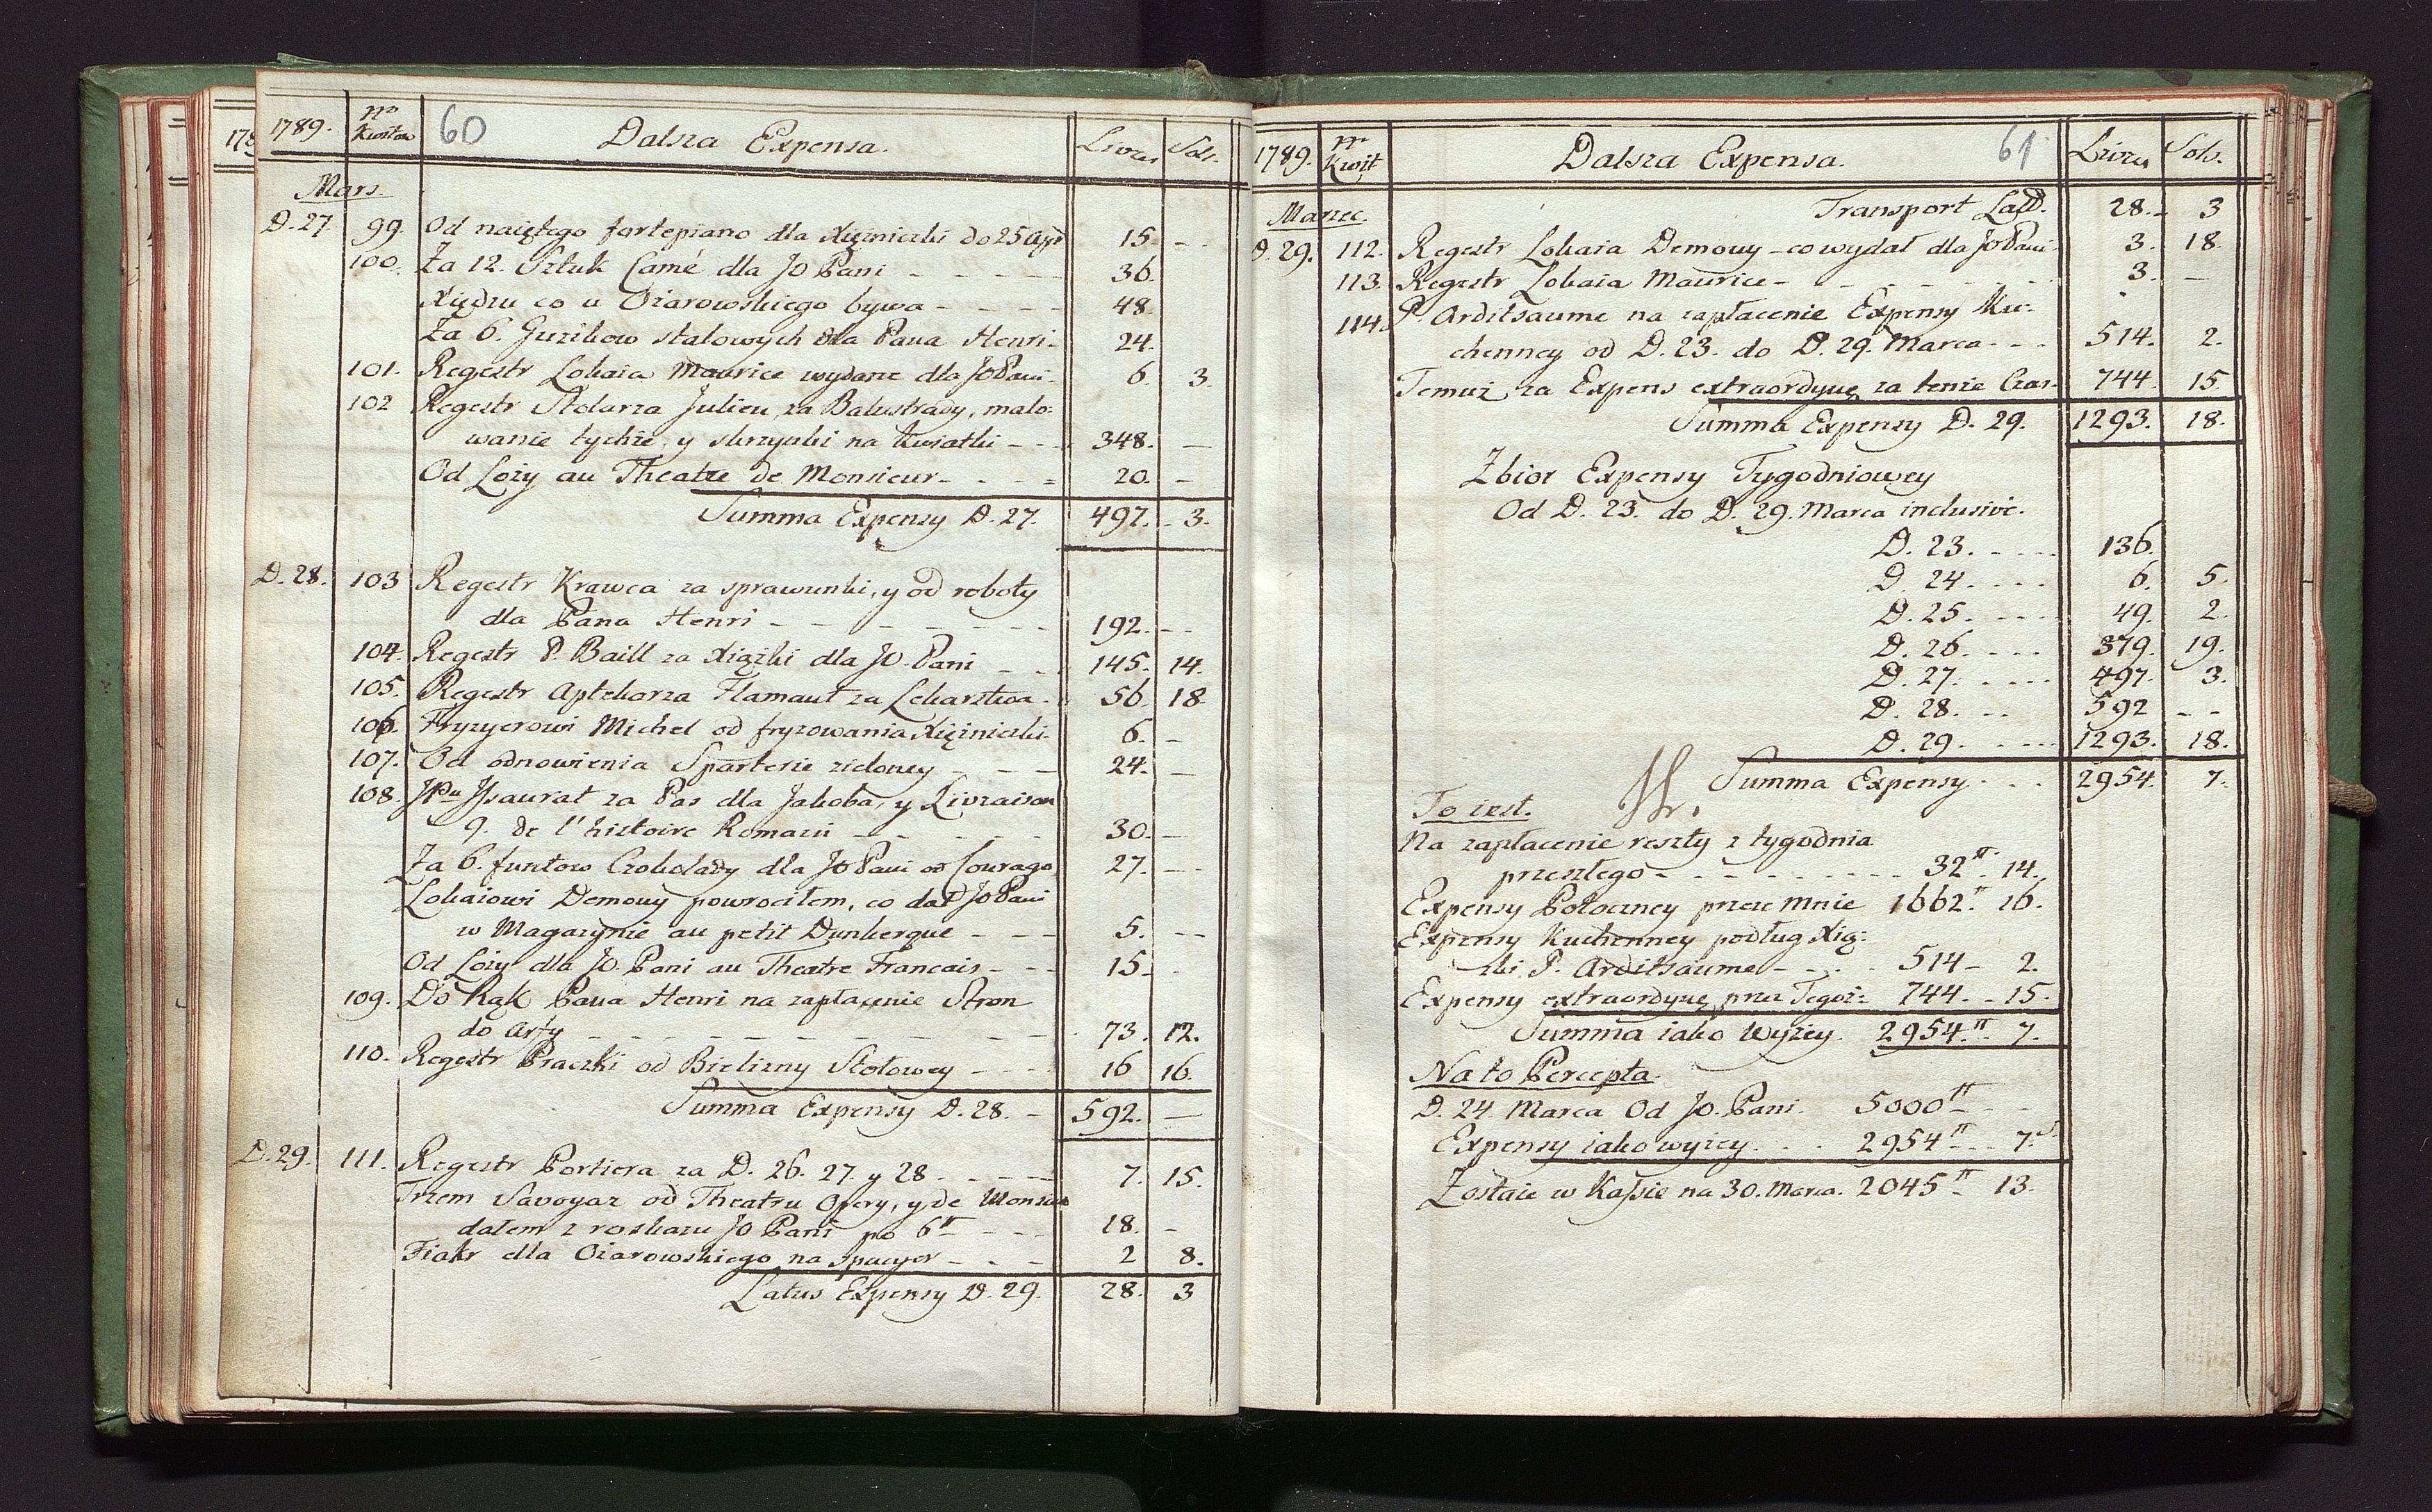 178
1789. No Kwitow 60 Dalsza Expensa. Livres Sols.
Mars.
D. 27. 99. Od naiętego fortepiano dla Xiężniczki do 25 Apr 15 - -
100. Za 12. Sztuk Camé dla JO Pani - - - - 36.
Xiędzu co u Ożarowskiego bywa - - - - 48.
Za 6. Guzikow stalowych dla Pana Henri - 24.
101. Regestr Lokaia Maurice wydane dla JO Pani - 6. 3.
102 Regestr Stolarza Julien, za Balustrady, malo-
wanie tychże, y skrzynki na kwiatki - - - 348. -
Od Loży au Theatre de Monsieur - - - - 20. -
Summa Expensy D. 27. 497. 3.
D. 28. 103 Regestr Krawca za sprawunki, y od roboty
dla Pana Henri - - - - - - - 192. - -
104. Regestr P. Baill za Xiążki dla JO. Pani - - 145. 14.
105. Regestr Aptekarza Flamant za Lekarstwa - 56. 18.
106. Fryzyerowi Michel od fryzowania Xiężniczki - 6. -
107. Od odnowienia Sparterie zieloney - - - 24. -
108. JPu Jsaurat za Pas dla Jakoba, y Livraison
9. de l'histoire Romain - - - - - 30. -
Za 6. funtow Czokolady dla JO Pani od Courago 27. - -
Lokaiowi Demouy powrocilem, co dał JO Pani
w Magazynie au petit Dunkerque - - - 5. - -
Od Loży dla JO. Pani au Theatre Francais - - 15 -
109. Do Rąk Pana Henri na zapłacenie Stron
do Arfy - - - - - - - - - 73. 12.
110. Regestr Praczki od Bielizny Stołowey - - - 16 16.
Summa Expensy D. 28. - 592. -
D. 29. 111. Regestr Portiera za D. 26. 27. y 28 - - - - 7. 15.
Trzem Savoyaz od Theatru Opery, y de Monsieur
dałem z roskazu JO Pani po 6 tt - - - 18. -
Fiakr dla Ożarowskiego na spacyer - - - 2 8.
Latus Expensy D. 29. 28. 3
1789. No Kwit Dalsza Expensa. 61 Livres Sols.
Marzec. Transport Lat. 28. - 3
D. 29. 112. Regestr Lokaia Demouy - co wydał dla JO Pani - 3. 18.
113. Regestr Lokaia Maurice - - - - - - 3. -
114. P. Arditsaume na zapłacenie Expensy Ku-
chenney od D. 23. do D. 29. Marca - - - 514. 2.
Temuż za Expens extraordynę za tenże Czas - 744. 15.
Summa Expensy D. 29. 1293. 18.
Zbior Expensy Tygodniowey
Od D. 23. do D. 29. Marca inclusivè.
D. 23. - - - - 136.
D. 24. - - - 6. 5.
D. 25. - - - - 49. 2.
D. 26. - - - - 379. 19.
D. 27. - - - - 497. 3.
D. 28. - - 592 - -
D. 29. - - - - 1293. 18.
Summa Expensy - - - 2954. 7.
To iest.
Na zapłacenie reszty z tygodnia
przeszłego - - - - - - - - 32 tt. 14.
Expensy Potoczney przez mnie 1662. tt 16.
Expensy Kuchenney podług Xią-
żki P. Arditsaume - - - - 514 - 2.
Expensy extraordynę przez Tegoż - 744. - 15.
Summa iako Wyżey. 2954. tt 7.
Na to Percepta.
D. 24 Marca Od JO. Pani. 5000 tt - -
Expensy iako wyżey. - - - 2954 tt - - 7. s
Zostaie w Kassie na 30. Marca. 2045 tt - 13.